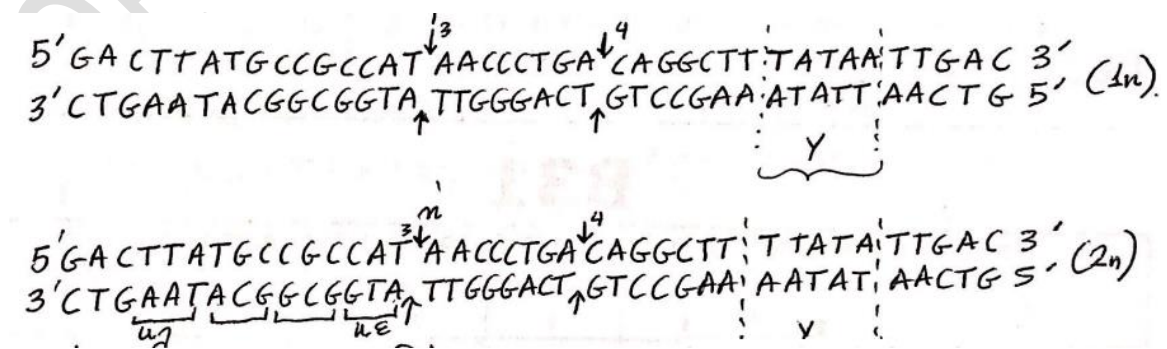 3 4
5' GACTTATGCCGCCAT↓AACCCTGA↓CAGGCTT TATAA TTGAC 3' (1η).
3' CTGAATACGGCGGTA TTGGGACT GTCCGAA ATATT AACTG 5'
↑ ↑
Y
3 4
5' GACTTATGCCGCCAT↓AACCCTGA↓CAGGCTT TTATA TTGAC 3' (2η)
3' CTGAATACGGCGGTA↑TTGGGACT↑GTCCGAA AATAT AACTG 5'
Y